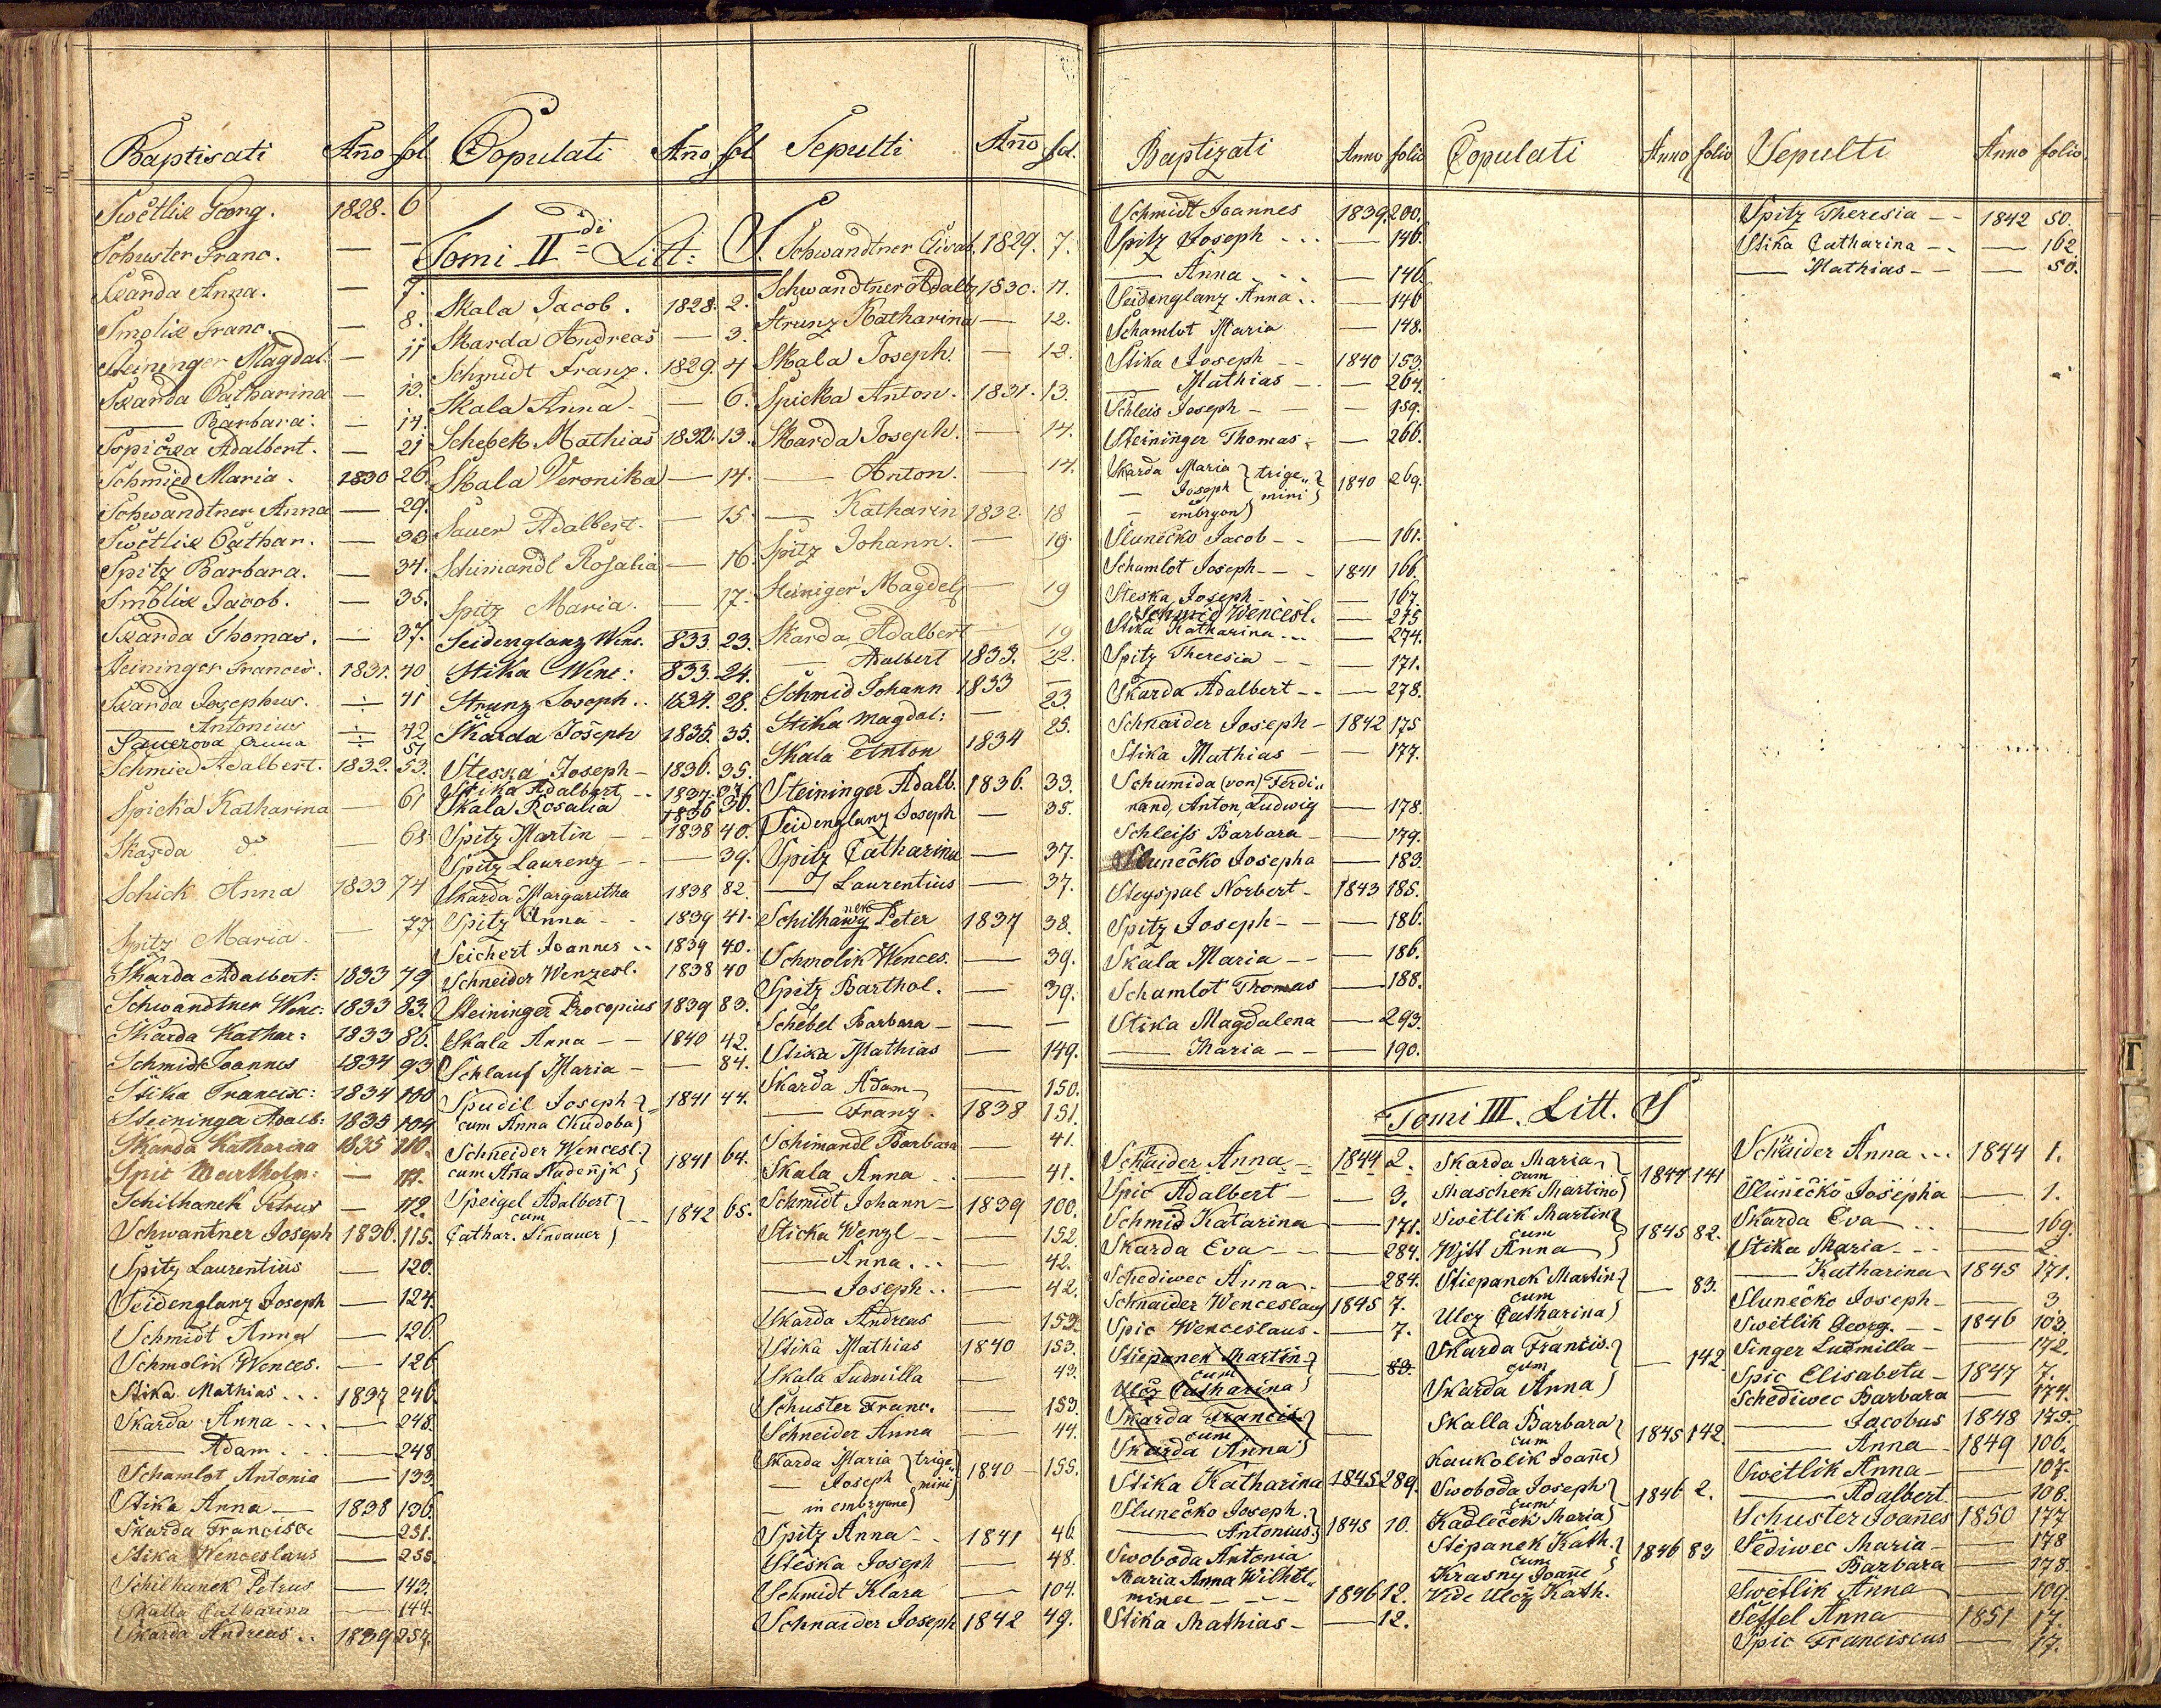 Baptisati Año fol Copulati Año fol Sepulti Año fol.
Swětlik Georg. 1828. 6
Schuster Franc. — —
Skarda Anna. — 7.
Smolik Franc. — 8.
Steininger Magdal. — 11
Skarda Catharina — 13.
— Barbara. — 14.
Sspička Adalbert. — 21
Schmied Maria. 1830 26.
Schwandtner Anna — 29.
Swětlik Cathar. — 33
Spitz Barbara. — 34.
Smolik Jacob. — 35.
Skarda Thomas. — 37.
Steininger Francis. 1831. 40
Skarda Josephus. ÷ 41
— Antonius ÷ 42
Sauerova Anna ÷ 51
Schmied Adalbert. 1832. 53.
Spicka Katharina — 61
Skarda do — 68
Schick Anna 1833 74
Spitz Maria. — 77
Skarda Adalbert: 1833 79
Schwandtner Wenc: 1833 83.
Skarda Kathar: 1833 86.
Schmidt Joannes 1834 93
Stika Francisc: 1834 100
Steininger Adalb: 1835 104
Skarda Katharina 1835 110.
Spic Bartholm: — 111.
Schilhanek Petrus — 112.
Schwantner Joseph 1836. 115.
Spitz Laurentius — 120.
Seidenglanz Joseph — 124.
Schmidt Anna — 126.
Schmolik Wences. — 126
Stika Mathias... 1837 246.
Skarda Anna... — 248.
— Adam... — 248
Schamlot Antonia — 133
Stika Anna — 1838 136.
Skarda Francisc. — 251.
Stika Wenceslaus — 255.
Schilhanek Petrus — 143.
Skalla Catharina — 144.
Skarda Andreas.. 1839 257.
Tomi IIdi Litt: S.
Skala Jacob. 1828. 2.
Skarda Andreas — 3.
Schmidt Franz. 1829. 4
Skala Anna — 6.
Schebek Mathias 1832. 13.
Skala Veronika — 14.
Sauer Adalbert. — 15
Schimandl Rosalia — 16.
Spitz Maria. — 17.
Seidenglanz Wenc. 833. 23.
Stika Wenc: 833. 24.
Strunz Joseph.. 1834. 28.
Skarda Joseph 1835. 35.
Steska Joseph — 1836. 35.
Stika Adalbert .. 1837.
Skala Rosalia 1836 36.
Spitz Martin — 1838 40.
Spitz Laurenz — — 39.
Skarda Margaritha 1838 82.
Spitz Anna - 1839 41.
Seichert Joannes .. 1839 40.
Schneider Wenzesl. 1838 40
Steininger Procopius 1839 83.
Skala Anna — 1840 42.
Schlauf Maria — — 84.
Spudil Joseph 1841 44.
cum Anna Chudoba
Schneider Wencesl. 1841 64.
cum Aña Nadeñjk
Speigel Adalbert
cum -- 1842 65.
Cathar. Lindauer
Schwandtner Elisab. 1829. 7.
Schwandtner Adalb 1830. 11.
Strunz Katharina — 12.
Skala Joseph. — 12.
Spicka Anton. 1831. 13.
Skarda Joseph. — 14.
— Anton. — 14.
— Katharin 1832. 18
Spitz Johann. — 19.
Steiniger Magdel — 19
Skarda Adalbert — 19
— Adalbert 1833. 22.
Schmid Johann 1833 —
23.
Stika Magdal: — 25.
Skala Anton 1834
Steininger Adalb. 1836. 33.
Seidenglanz Joseph — 35.
Spitz Catharina — 37.
— Laurentius — 37.
Schilhanek Peter 1837 38.
Schmolik Wences. — 39.
Spitz Barthol. — 39.
Schebel Barbara — — —
Stika Mathias — 149.
Skarda Adam — 150.
— Franz. 1838 151.
Schimandl Barbara — 41.
Skala Anna — 41.
Schmidt Johann — 1839 100.
Sticka Wenzl — — 152.
— Anna... — 42.
— Joseph.. — 42.
Skarda Andreas — 153.
Stika Mathias 1840 153.
Skala Ludmilla — 43.
Schuster Franc. — 153.
Schneider Anna — 44.
Skarda Maria trige„
— Joseph mini 1840 — 155.
— in embryone
Spitz Anna - 1841 46.
Steska Joseph — 48.
Schmidt Klara — 104.
Schnaider Joseph 1842 49.
Baptizati Anno folio Copulati Anno folio Sepulti Anno folio
Schmidt Joannes 1839. 200.
Spitz Joseph ... — 146.
— Anna... — 146.
Seidenglanz Anna.. — 146
Schamlot Maria — 148.
Stika Joseph -- 1840 153.
— Mathias — — 264.
Schleis Joseph — — 159.
Steininger Thomas. — 266.
Skarda Maria trige„
— Joseph mini 1840 269.
— et embryon
Slunečko Jacob -- — 161.
Schamlot Joseph --- 1841 166.
Steska Joseph — — 167.
Schmid Wencesl. — 275
Stika Katharina... — 274.
Spitz Theresia -- — 171.
Skarda Adalbert -- — 278.
Schnaider Joseph - 1842 175
Stika Mathias — — 177.
Schumida (von) Ferdi„
nand, Anton, Ludwig — 178.
Schleiss Barbara — — 179.
Slunečko Josepha — 183
Steyspal Norbert - 1843 185.
Spitz Joseph — — 186.
Skala Maria -- — 186.
Schamlot Thomas — 188.
Stika Magdalena — 293.
— Maria -- — 190.
Spitz Theresia -- 1842 50.
Stika Catharina -. — 162
— Mathias -- — 50.
Tomi III. Litt. S
Schnaider Anna — 1844 2.
Spic Adalbert — — 3.
Schmid Katarina — 171.
Skarda Eva -- — 284.
Schediwec Anna — 284.
Schnaider Wenceslaus 1845 7.
Spic Wenceslaus. — 7.
Stiepanek Martin
cum — 83.
Ulcz Catharina
Skarda Francis.
cum —
Skarda Anna
Stika Katharina 1845 289.
Slunečko Joseph.
— Antonius. 1845 10.
Swoboda Antonia
Maria Anna Wilhel„
mina --- 1846 12.
Stika Mathias — — 12.
Skarda Maria
cum 1844 141
Maschek Martino
Swětlik Martin
cum 1845 82.
Wjtt Anna
Stiepanek Martin
cum — 83.
Ulcz Catharina
Skarda Francis.
cum — 142
Skarda Anna
Skalla Barbara
cum 1845 142.
Kaukolik Joañe
Swoboda Joseph
cum 1846 2.
Kadleček Maria
Stepanek Kath.
cum 1846 83
Krasny Joañe
Vide Ulcz Kath.
Schnaider Anna ... 1844 1.
Slunečko Josepha — 1.
Skarda Eva .. — 169.
Stika Maria --- — 2.
— Katharina 1845 171.
Slunečko Joseph — — 3
Swětlik Georg. -- 1846 103.
Singer Ludmilla — — 172.
Spic Elisabeta — 1847 7.
Schediwec Barbara — 174.
— Jacobus 1848 175.
— Anna - 1849 106.
Swětlik Anna — — 107.
— Adalbert. — 108.
Schuster Joañes 1850 177
Šediwec Maria — — 178
— Barbara — 178.
Swětlik Anna — 109.
Šeffel Anna 1851 17.
Spic Franciscus — 17.